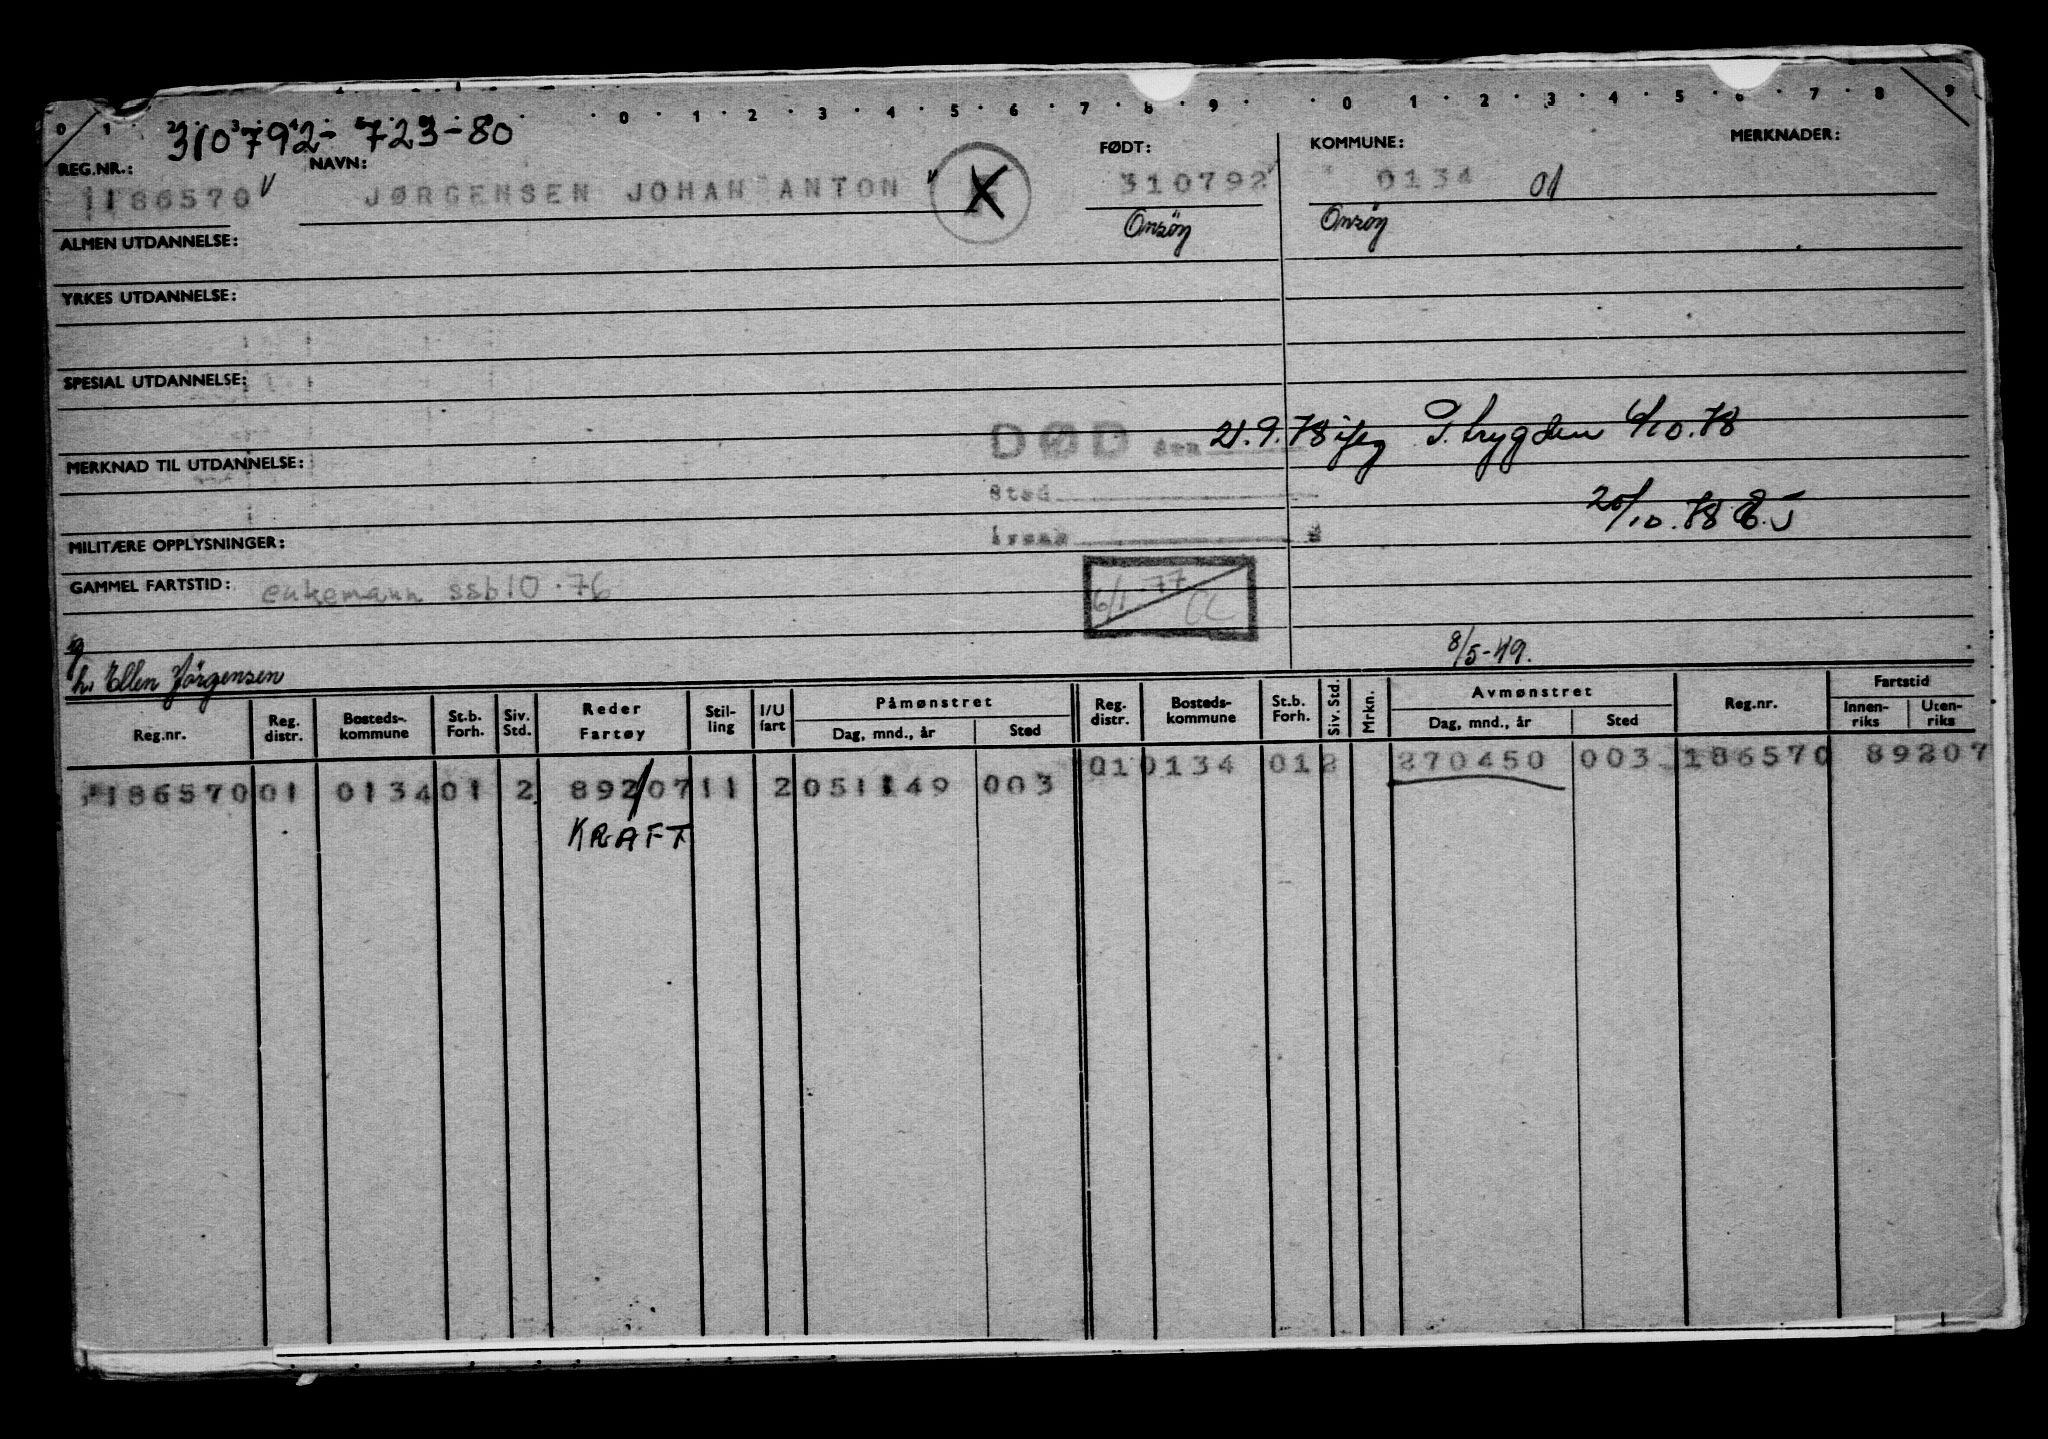 0 1 2 3 4 5 6 7 8 9 0 1 2 3 4 5 6 7 8 9
310792-723-80
REG.NR.: NAVN: FØDT: KOMMUNE: MERKNADER:
186570 JØRGENSEN JOHAN ANTON X 310792 0134 01
Onsöy Onsöy
ALMEN UTDANNELSE:
YRKES UTDANNELSE:
SPESIAL UTDANNELSE:
DØD den 21.9.78 iføg P.trygden 6/10.78
MERKNAD TIL UTDANNELSE:
Sted
20/10.78
MILITÆRE OPPLYSNINGER: årsak
GAMMEL FARTSTID: enkemann ssb10.76 6/1.77 CL
g
h. Ellen Jørgensen 8/5-49.
Reg.nr. Reg. distr. Bosteds-kommune St.b. Forh. Siv. Std. Reder Fartøy Stil-ling I/U fart Påmønstret Dag, mnd., år Sted Reg. distr. Bosteds-kommune St.b. Forh. Siv. Std. Mrkn. Avmønstret Dag, mnd., år Sted Reg.nr. Fartstid Innen-riks Uten-riks
186570 01 0134 01 2 89207 11 2 051149 003 01 0134 01 2 270450 003 186570 89207
KRAFT